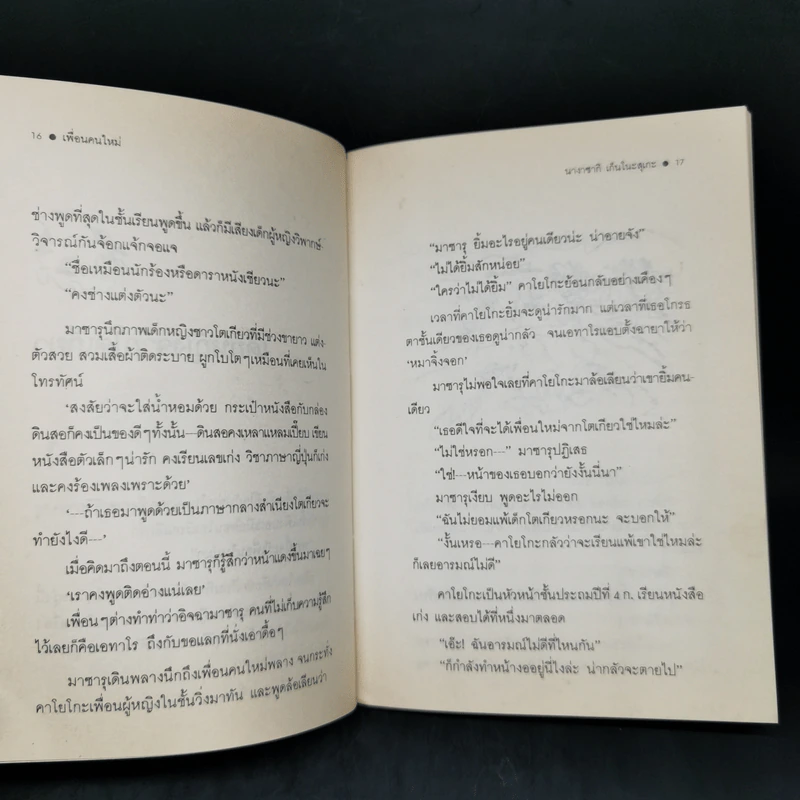 16 ● เพื่อนคนใหม่
ช่างพูดที่สุดในชั้นเรียนพูดขึ้น แล้วก็มีเสียงเด็กผู้หญิงวิพากษ์
วิจารณ์กันจ้อกแจ้กจอแจ
“ชื่อเหมือนนักร้องหรือดาราหนังเชียวนะ”
“คงช่างแต่งตัวนะ”
มาซารุนึกภาพเด็กหญิงชาวโตเกียวที่มีช่วงขายาว แต่ง-
ตัวสวย สวมเสื้อผ้าติดระบาย ผูกโบโตๆเหมือนที่เคยเห็นใน
โทรทัศน์
‘สงสัยว่าจะใส่น้ำหอมด้วย กระเป๋าหนังสือกับกล่อง
ดินสอก็คงเป็นของดีๆทั้งนั้น---ดินสอคงเหลาแหลมเปี๊ยบ เขียน
หนังสือตัวเล็กๆน่ารัก คงเรียนเลขเก่ง วิชาภาษาญี่ปุ่นก็เก่ง
และคงร้องเพลงเพราะด้วย’
‘---ถ้าเธอมาพูดด้วยเป็นภาษากลางสำเนียงโตเกียวจะ
ทำยังไงดี---’
เมื่อคิดมาถึงตอนนี้ มาซารุก็รู้สึกว่าหน้าแดงขึ้นมาเฉยๆ
‘เราคงพูดติดอ่างแน่เลย’
เพื่อนๆต่างทำท่าว่าอิจฉามาซารุ คนที่ไม่เก็บความรู้สึก
ไว้เลยก็คือเอทาโร ถึงกับขอแลกที่นั่งเอาดื้อๆ
มาซารุเดินพลางนึกถึงเพื่อนคนใหม่พลาง จนกระทั่ง
คาโยโกะเพื่อนผู้หญิงในชั้นวิ่งมาทัน และพูดล้อเลียนว่า
นางาซากิ เก็นโนะสุเกะ ● 17
“มาซารุ ยิ้มอะไรอยู่คนเดียวน่ะ น่าอายจัง”
“ไม่ได้ยิ้มสักหน่อย”
“ใครว่าไม่ได้ยิ้ม” คาโยโกะย้อนกลับอย่างเคืองๆ
เวลาที่คาโยโกะยิ้มจะดูน่ารักมาก แต่เวลาที่เธอโกรธ
ตาชั้นเดียวของเธอดูน่ากลัว จนเอทาโรแอบตั้งฉายาให้ว่า
‘หมาจิ้งจอก’
มาซารุไม่พอใจเลยที่คาโยโกะมาล้อเลียนว่าเขายิ้มคน-
เดียว
“เธอดีใจที่จะได้เพื่อนใหม่จากโตเกียวใช่ไหมล่ะ”
“ไม่ใช่หรอก---” มาซารุปฏิเสธ
“ใช่!---หน้าของเธอบอกว่ายังงั้นนี่นา”
มาซารุเงียบ พูดอะไรไม่ออก
“ฉันไม่ยอมแพ้เด็กโตเกียวหรอกนะ จะบอกให้”
“งั้นเหรอ---คาโยโกะกลัวว่าจะเรียนแพ้เขาใช่ไหมล่ะ
ก็เลยอารมณ์ไม่ดี”
คาโยโกะเป็นหัวหน้าชั้นประถมปีที่ 4 ก. เรียนหนังสือ
เก่ง และสอบได้ที่หนึ่งมาตลอด
“เอ๊ะ! ฉันอารมณ์ไม่ดีที่ไหนกัน”
“ก็กำลังทำหน้างออยู่นี่ไงล่ะ น่ากลัวจะตายไป”